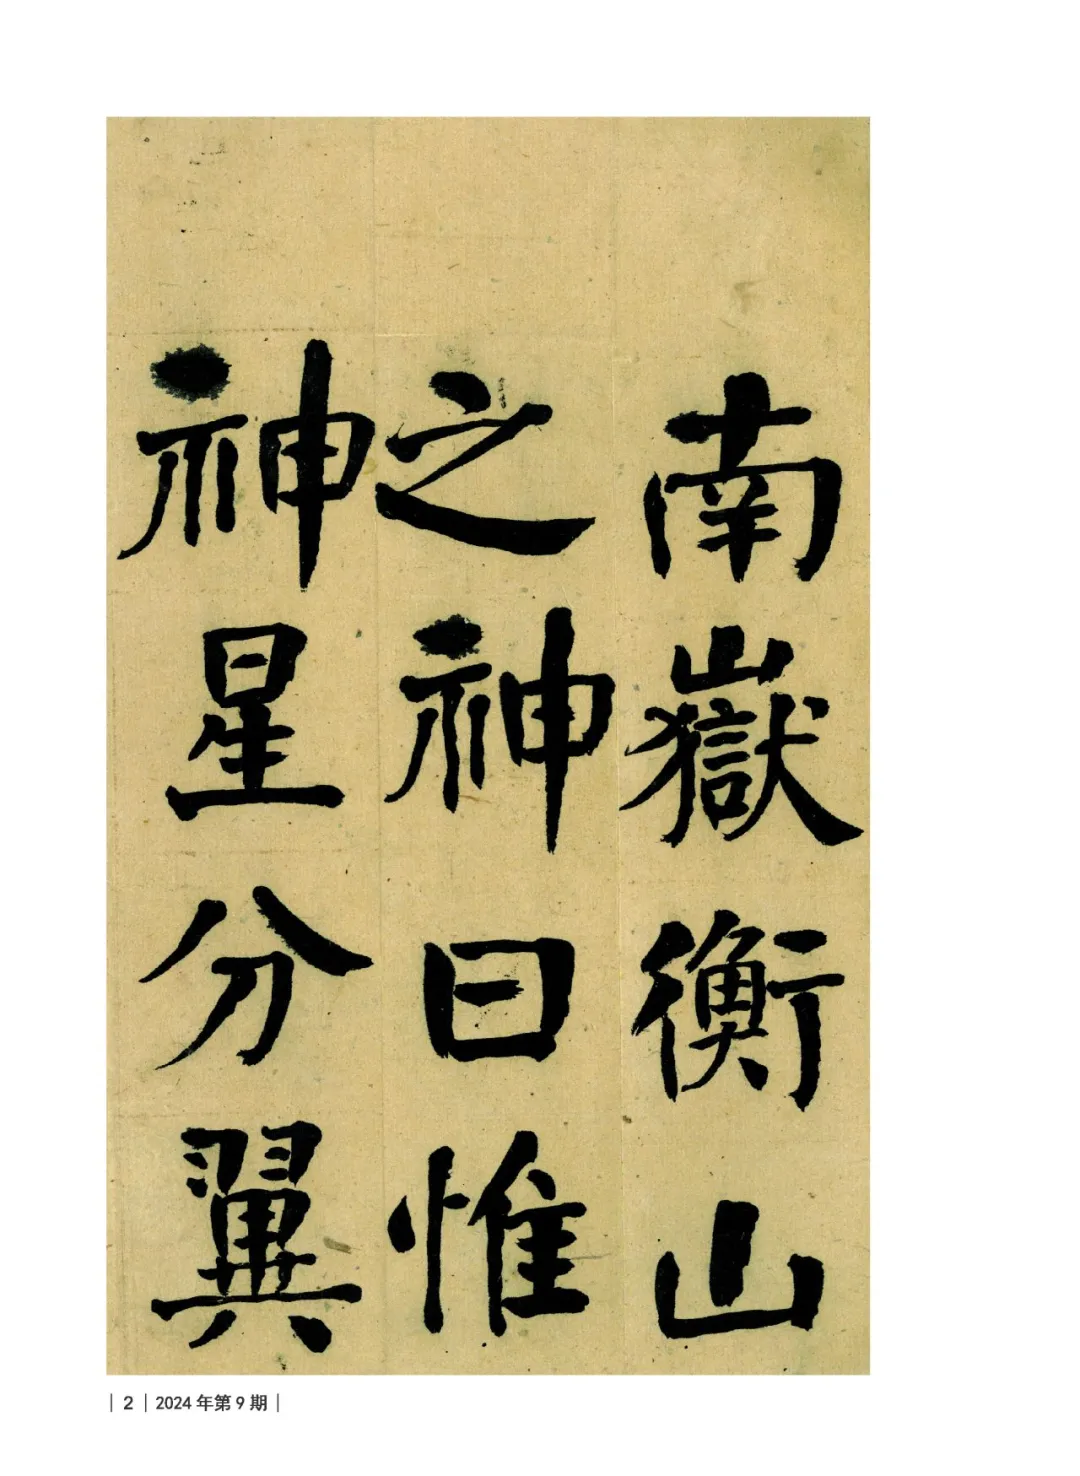 南嶽衡山
之神曰惟
神星分翼
2 2024 年第 9 期